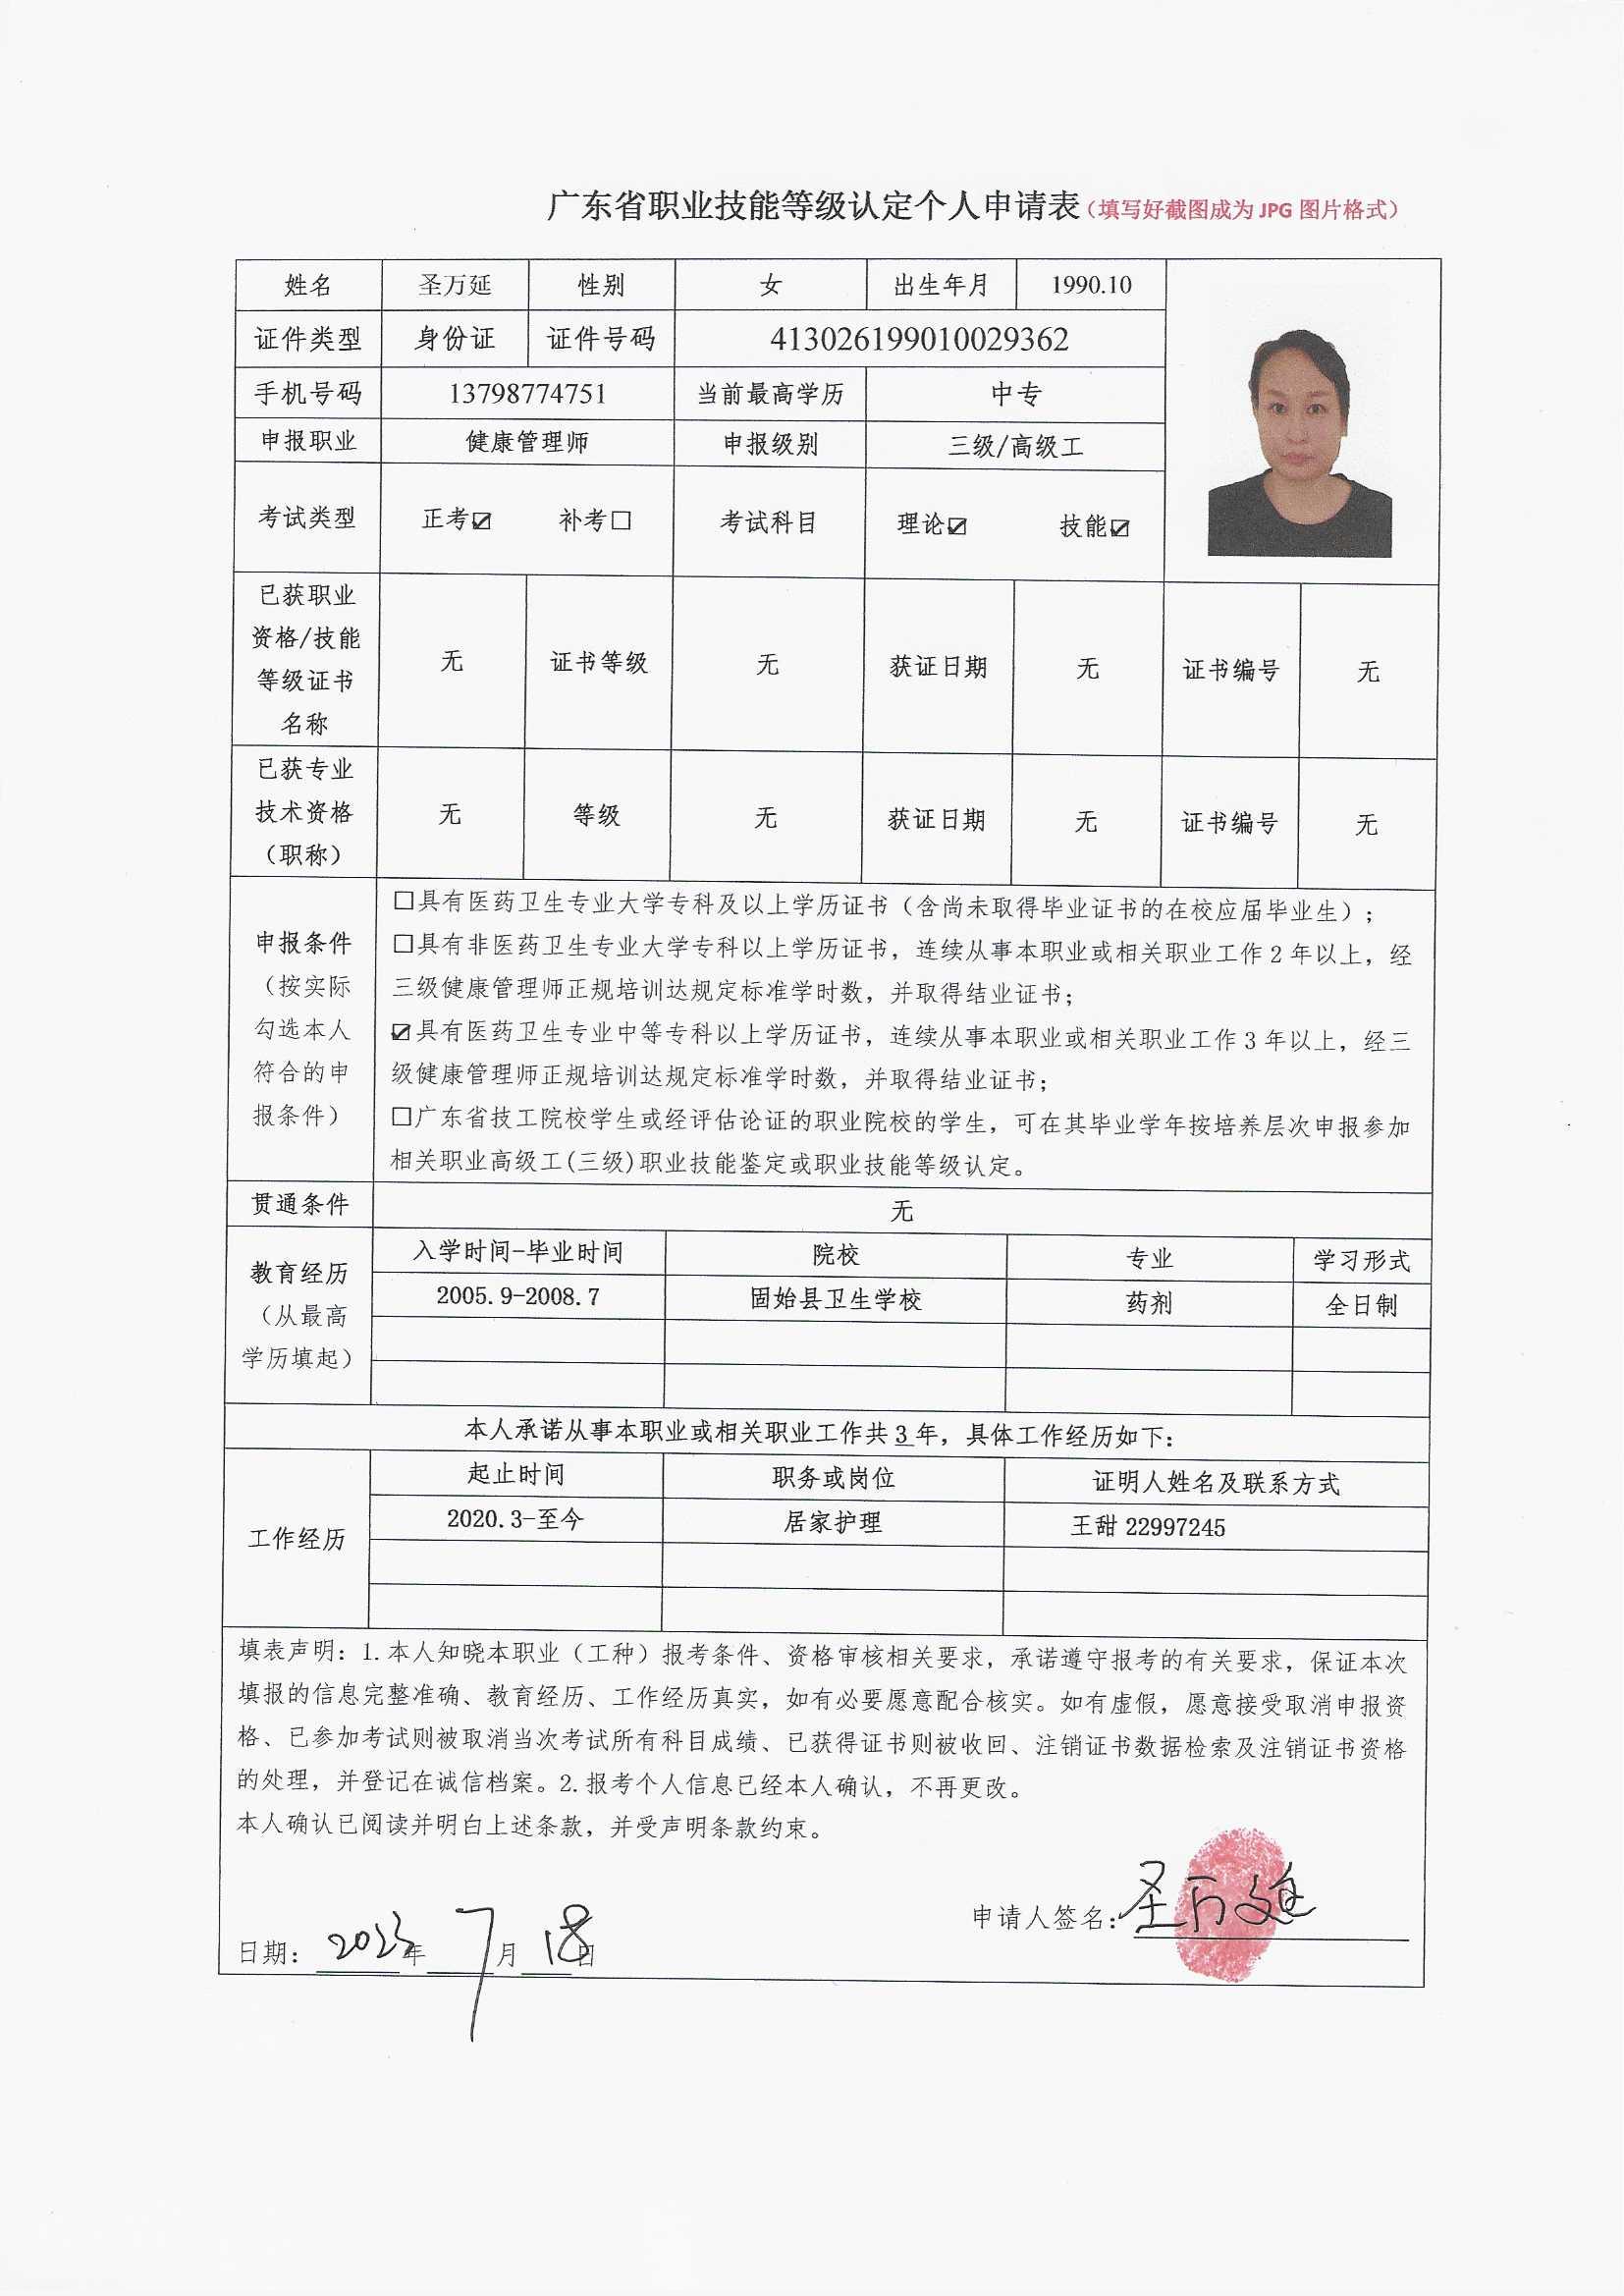 广东省职业技能等级认定个人申请表（填写好截图成为 JPG 图片格式）
姓名 圣万延 性别 女 出生年月 1990.10
证件类型 身份证 证件号码 413026199010029362
手机号码 13798774751 当前最高学历 中专
申报职业 健康管理师 申报级别 三级/高级工
考试类型 正考☑ 补考☐ 考试科目 理论☑ 技能☑
已获职业
资格/技能
等级证书
名称
无 证书等级 无 获证日期 无 证书编号 无
已获专业
技术资格
（职称）
无 等级 无 获证日期 无 证书编号 无
申报条件
（按实际
勾选本人
符合的申
报条件）
☐具有医药卫生专业大学专科及以上学历证书（含尚未取得毕业证书的在校应届毕业生）；
☐具有非医药卫生专业大学专科以上学历证书，连续从事本职业或相关职业工作 2 年以上，经
三级健康管理师正规培训达规定标准学时数，并取得结业证书；
☑具有医药卫生专业中等专科以上学历证书，连续从事本职业或相关职业工作 3 年以上，经三
级健康管理师正规培训达规定标准学时数，并取得结业证书；
☐广东省技工院校学生或经评估论证的职业院校的学生，可在其毕业学年按培养层次申报参加
相关职业高级工(三级)职业技能鉴定或职业技能等级认定。
贯通条件 无
教育经历
（从最高
学历填起）
入学时间-毕业时间 院校 专业 学习形式
2005.9-2008.7 固始县卫生学校 药剂 全日制
本人承诺从事本职业或相关职业工作共 3 年，具体工作经历如下：
工作经历
起止时间 职务或岗位 证明人姓名及联系方式
2020.3-至今 居家护理 王甜 22997245
填表声明：1.本人知晓本职业（工种）报考条件、资格审核相关要求，承诺遵守报考的有关要求，保证本次
填报的信息完整准确、教育经历、工作经历真实，如有必要愿意配合核实。如有虚假，愿意接受取消申报资
格、已参加考试则被取消当次考试所有科目成绩、已获得证书则被收回、注销证书数据检索及注销证书资格
的处理，并登记在诚信档案。2.报考个人信息已经本人确认，不再更改。
本人确认已阅读并明白上述条款，并受声明条款约束。
申请人签名：圣万延
日期：2023年7月18日